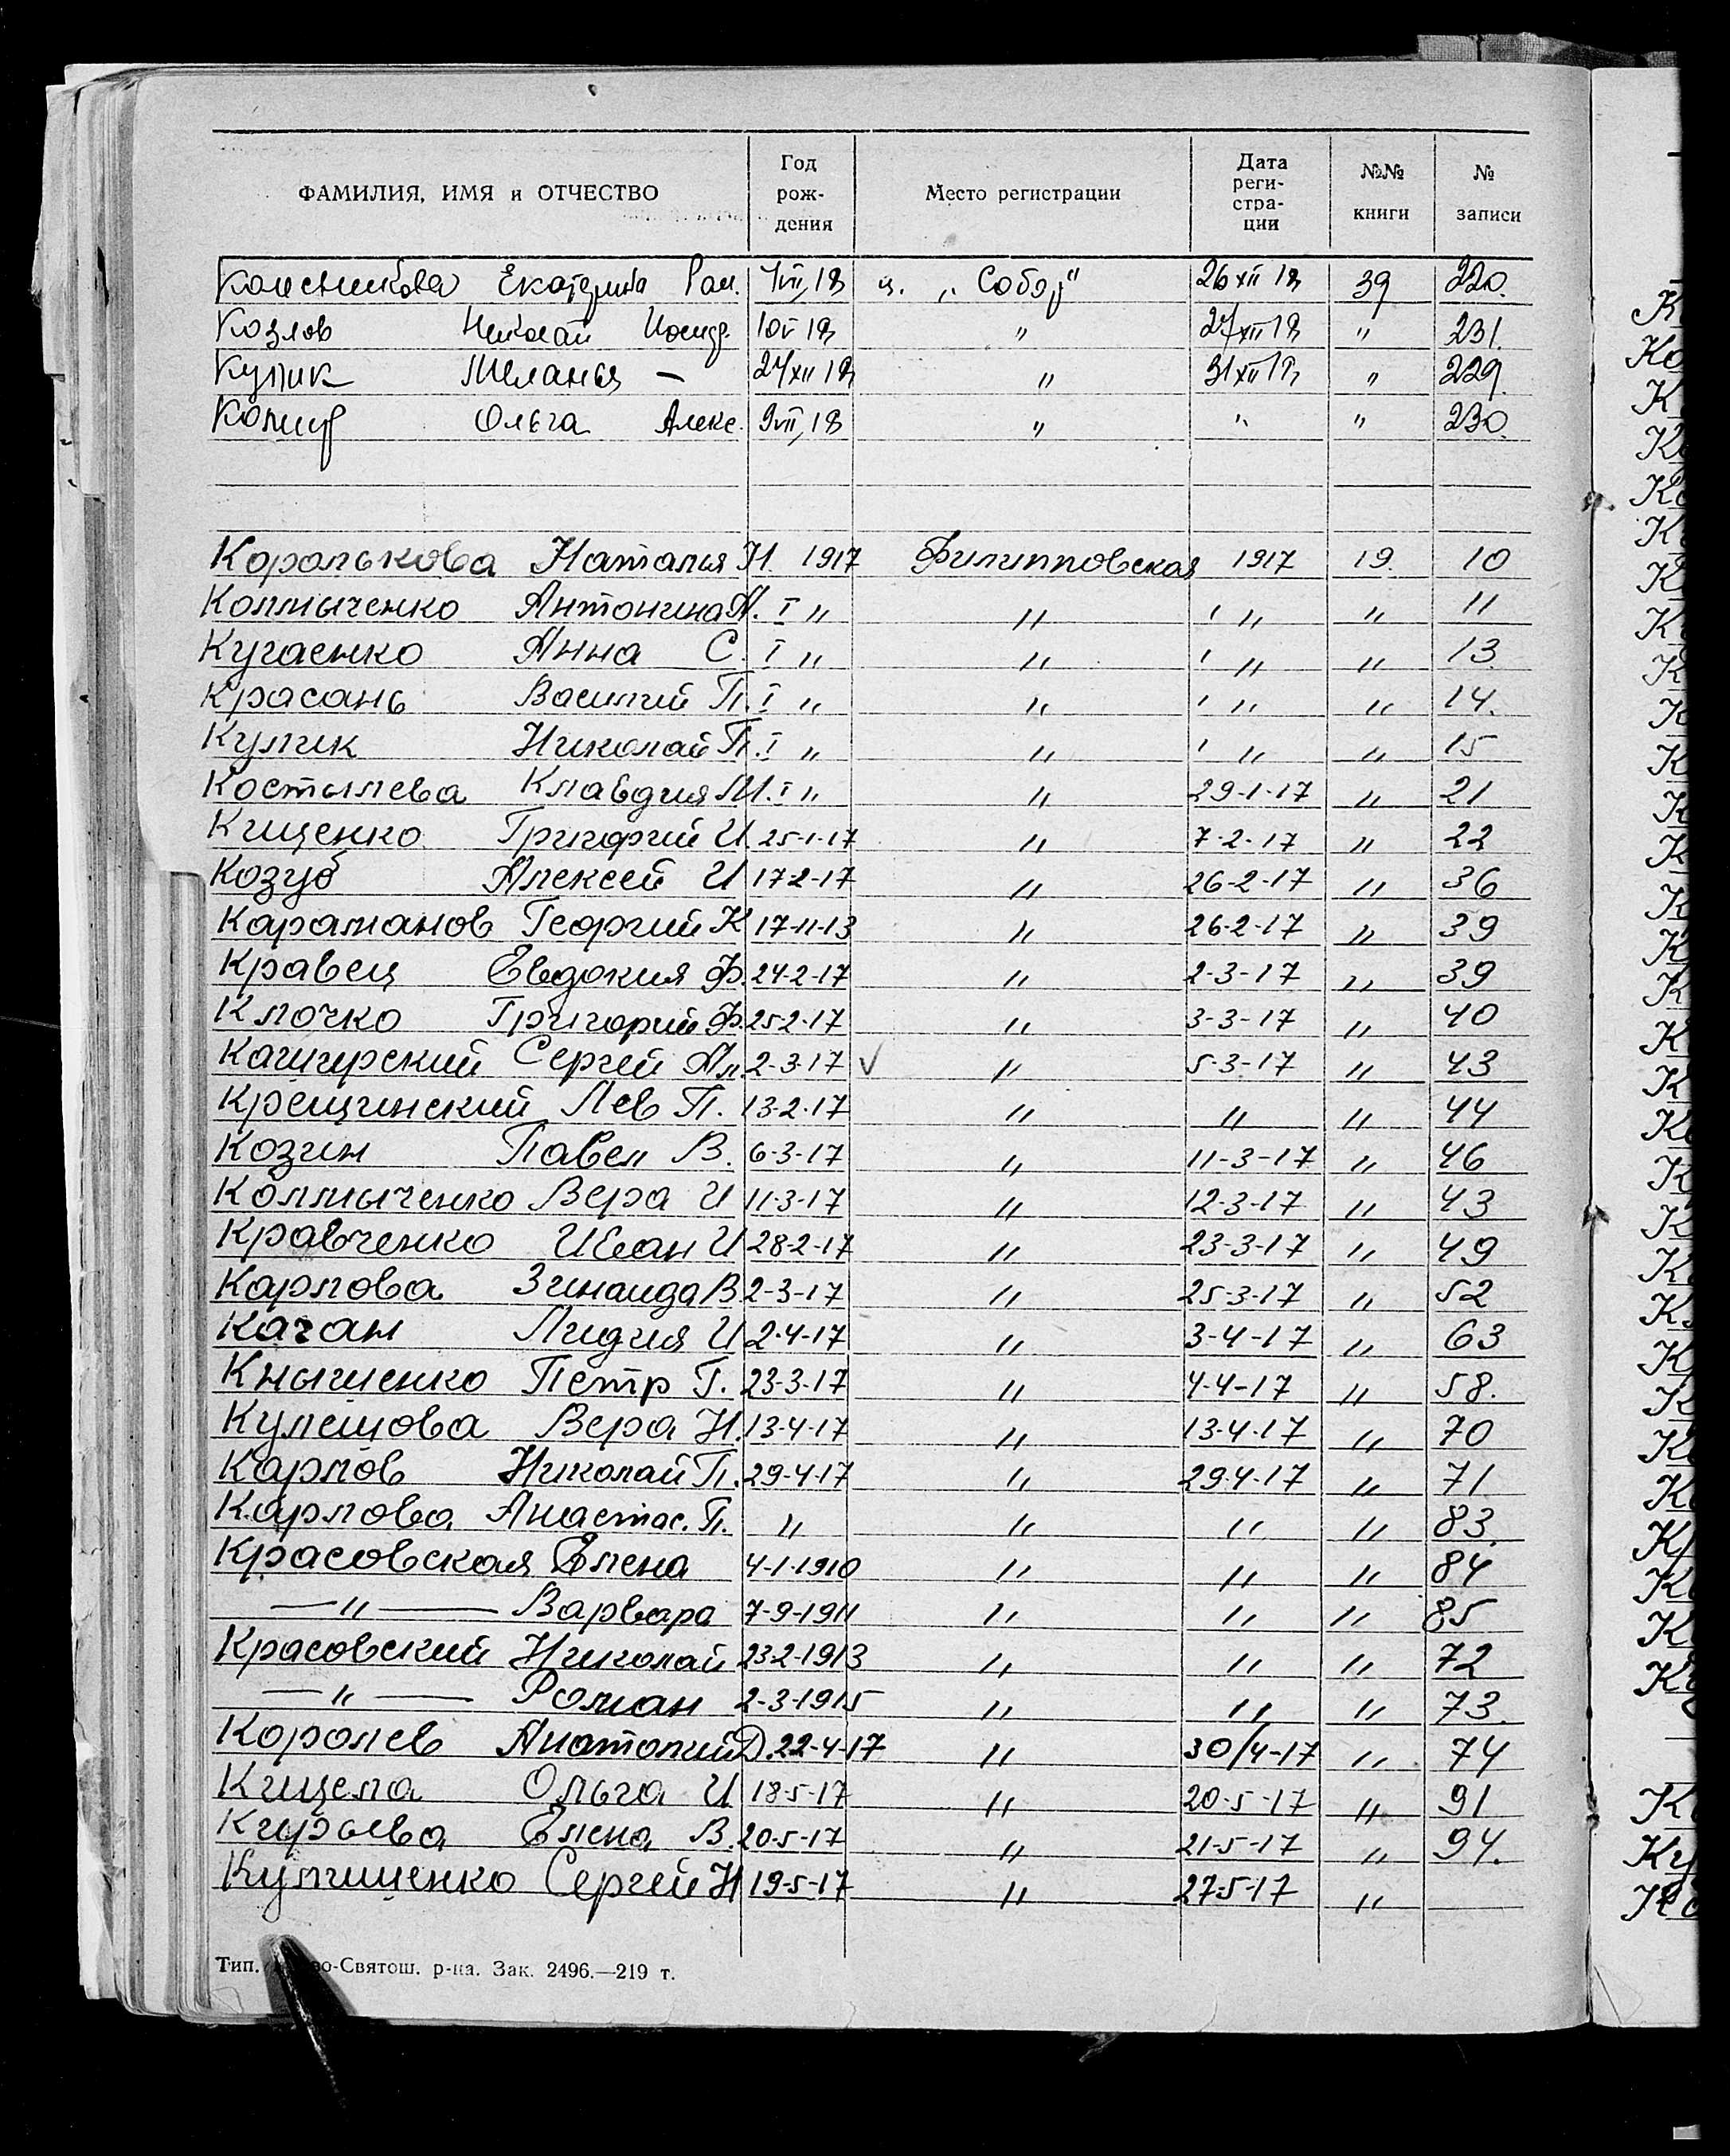 ФАМИЛИЯ, ИМЯ и ОТЧЕСТВО Год рож- дения Место регистрации Дата реги- стра- ции №№ книги № записи
Колесникова Екатерина Ром. 7 VII 18 ц. „Собор" 26 XII 18 39 220.
Козлов Николай 10 V 18 " 27 XII 18 " 231.
Кулик Меланья — 24 XII 18 " 31 XII 18 " 229.
Ольга Алекс. 9 VII 18 " " " 230.
Королькова Наталья Н. 1917 Филипповская 1917 19. 10
Колпыченко Антонина А. I " " 1 " " 11
Кугаенко Анна С. I " " 1 " " 13
Красань Василий П. I " " 1 " " 14.
Кулик Николай П. I " " 1 " " 15
Костылева Клавдия М. I " " 29-1-17 " 21
Кищенко Григорий И. 25-1-17 " 7-2-17 " 22
Козуб Алексей И 17-2-17 " 26-2-17 " 36
Караманов Георгий К 17-11-13 " 26-2-17 " 39
Кравец Евдокия Ф. 24-2-17 " 2-3-17 " 39
Клочко Григорий Ф. 25-2-17 " 3-3-17 " 40
Каширский Сергей Ал. 2-3-17 √ " 5-3-17 " 43
Крещинский Лев П. 13-2-17 " " " 44
Козин Павел В. 6-3-17 " 11-3-17 " 46
Колпыченко Вера И 11-3-17 " 12-3-17 " 43
Кравченко Иван И 28-2-17 " 23-3-17 " 49
Карпова Зинаида В 2-3-17 " 25-3-17 " 52
Качан Лидия И 2-4-17 " 3-4-17 " 63
Кнышенко Петр Г. 23-3-17 " 4-4-17 " 58.
Кулешова Вера Н. 13-4-17 " 13-4-17 " 70
Карпов Николай П. 29-4-17 " 29-4-17 " 71
Карпова Анастас. П. " " " " 83.
Красовская Елена 4-1-1910 " " " 84
—"— Варвара 7-9-1911 " " " 85
Красовский Николай 23-2-1913 " " " 72
—"— Роман 2-3-1915 " " " 73.
Королев Анатолий Д. 22-4-17 " 30/4-17 " 74
Кицела Ольга И 18-5-17 " 20-5-17 " 91
Кирьева Елена В. 20-5-17 " 21-5-17 " 94.
Кулишенко Сергей Н 19-5-17 " 27-5-17 "
Тип. -Святош. р-на. Зак. 2496.—219 т.